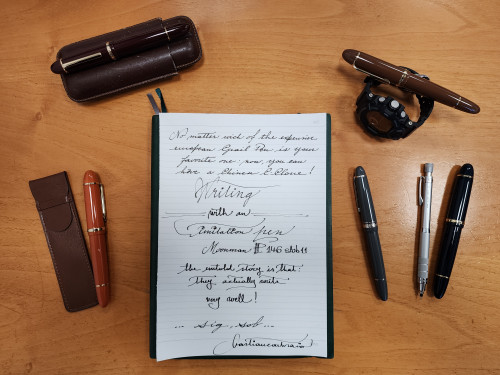 No matter wich of the expensive
european Grail Pen is your
favorite one, now, you can
have a Chinese C. Clone!
Writing
with an
Imitation pen
Moonman 146 stub 1.1
the untold story is that:
they actually write
very well!
... sig, sob...